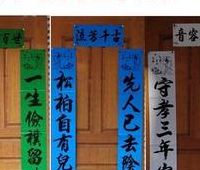 百世
流芳千古
音容
一生儉樸留
松柏自有兒
先人已去陰
守孝三年